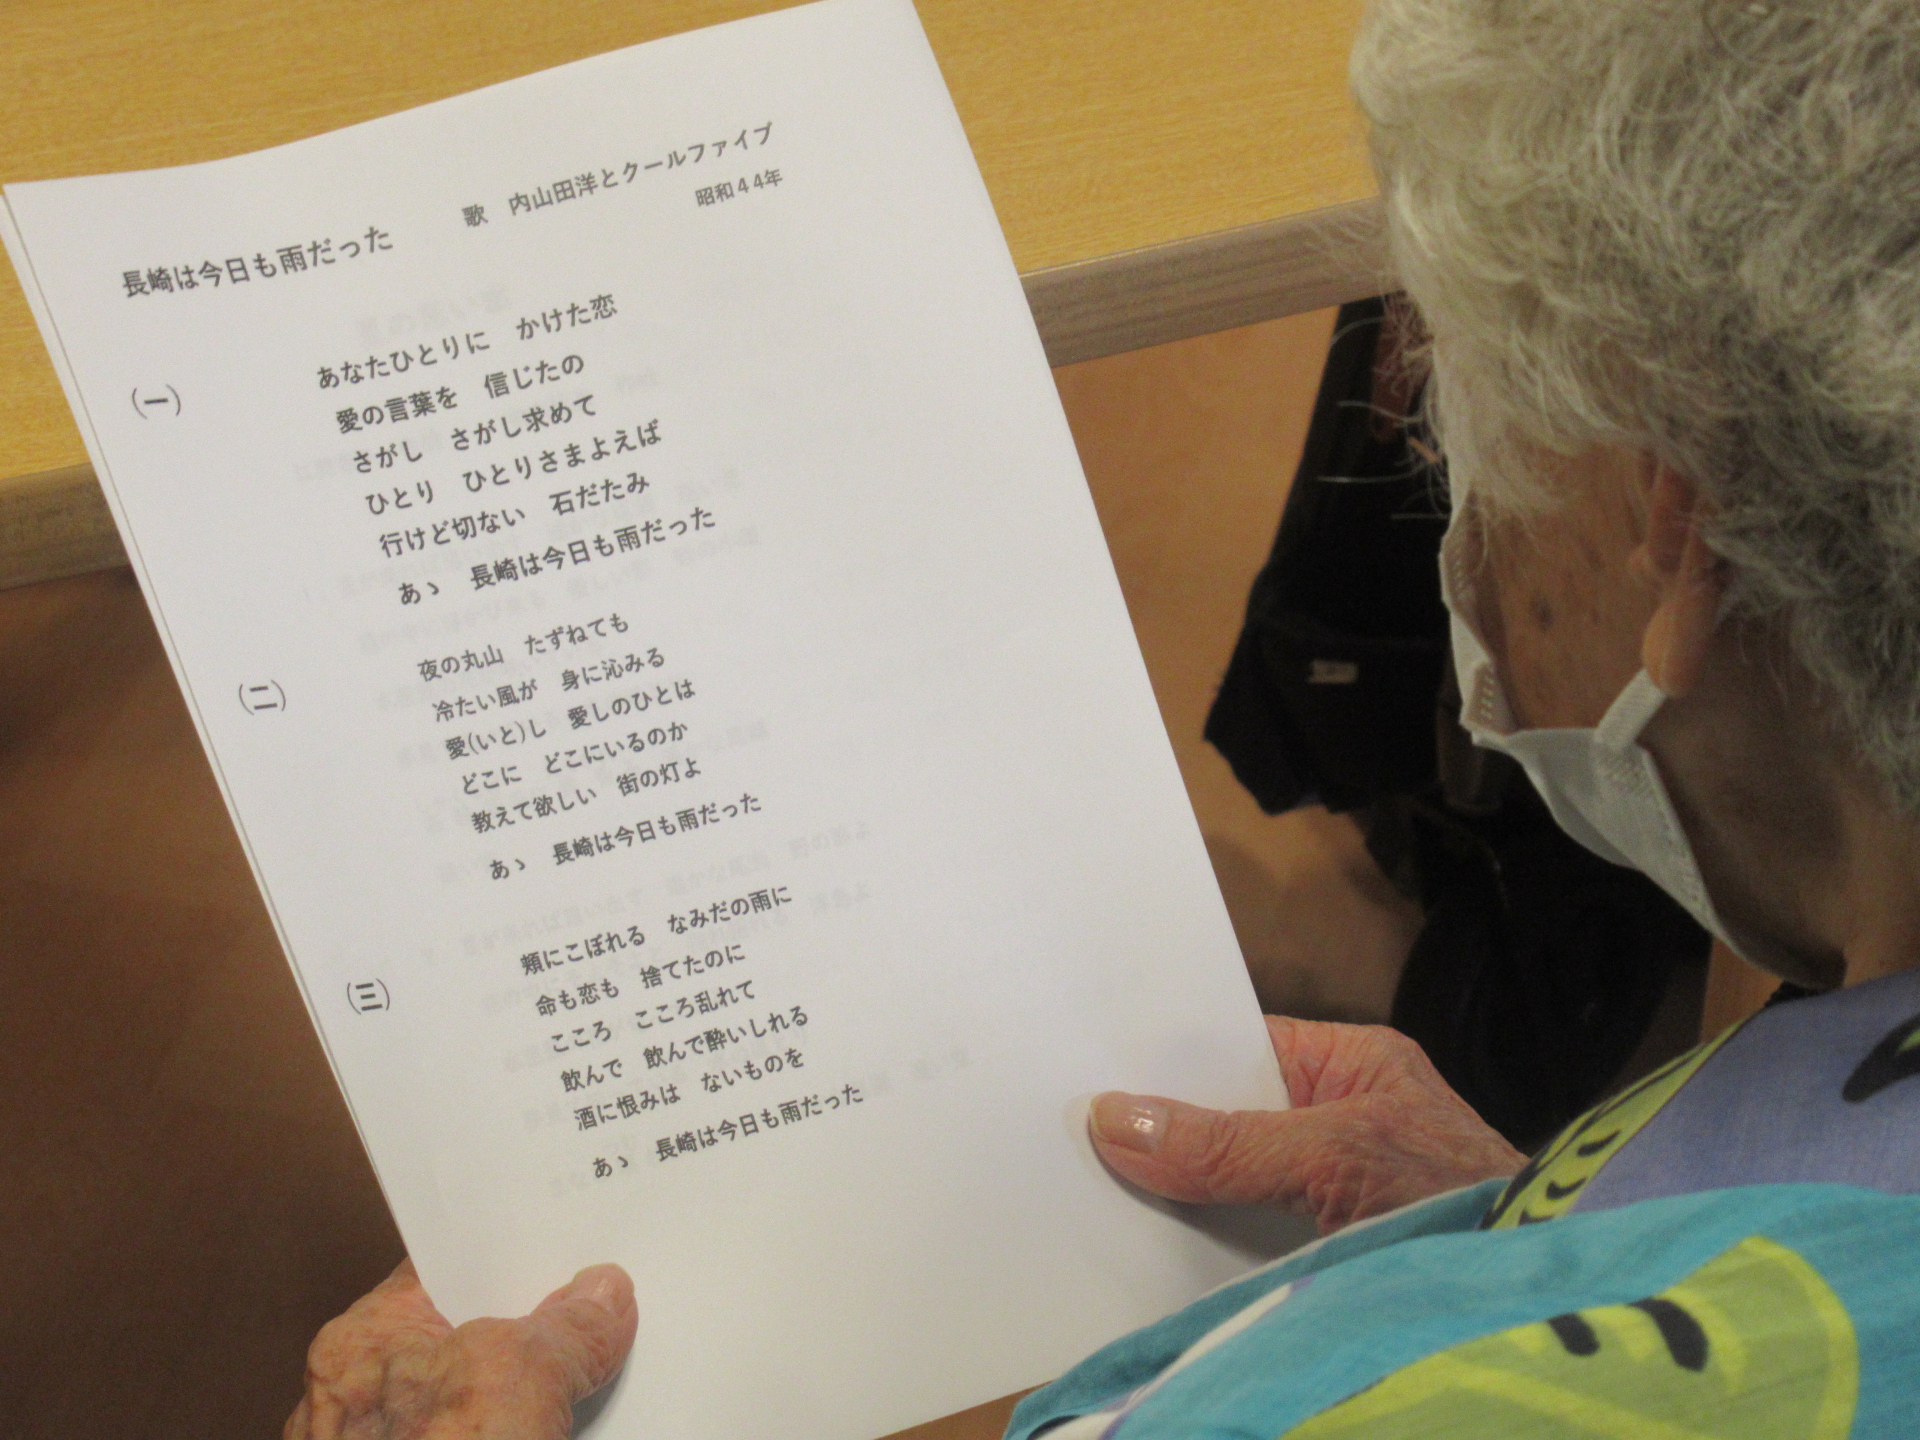 歌　内山田洋とクールファイブ
昭和44年
長崎は今日も雨だった
(一)
あなたひとりに　かけた恋
愛の言葉を　信じたの
さがし　さがし求めて
ひとり　ひとりさまよえば
行けど切ない　石だたみ
あゝ　長崎は今日も雨だった
(二)
夜の丸山　たずねても
冷たい風が　身に沁みる
愛(いと)し　愛しのひとは
どこに　どこにいるのか
教えて欲しい　街の灯よ
あゝ　長崎は今日も雨だった
(三)
頬にこぼれる　なみだの雨に
命も恋も　捨てたのに
こころ　こころ乱れて
飲んで　飲んで酔いしれる
酒に恨みは　ないものを
あゝ　長崎は今日も雨だった